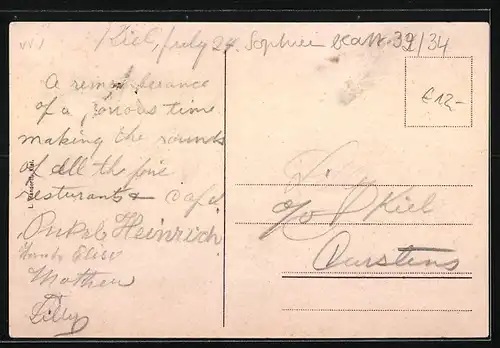 Kiel, july 24. Sophien bla 39/34
A remembrance
of a joious time
making the rounds
of all the fine
resturants + cafe
Onkel Heinrich
Tante Elise
Mother
Lilly
€12,-
c/o Kiel
Carstens